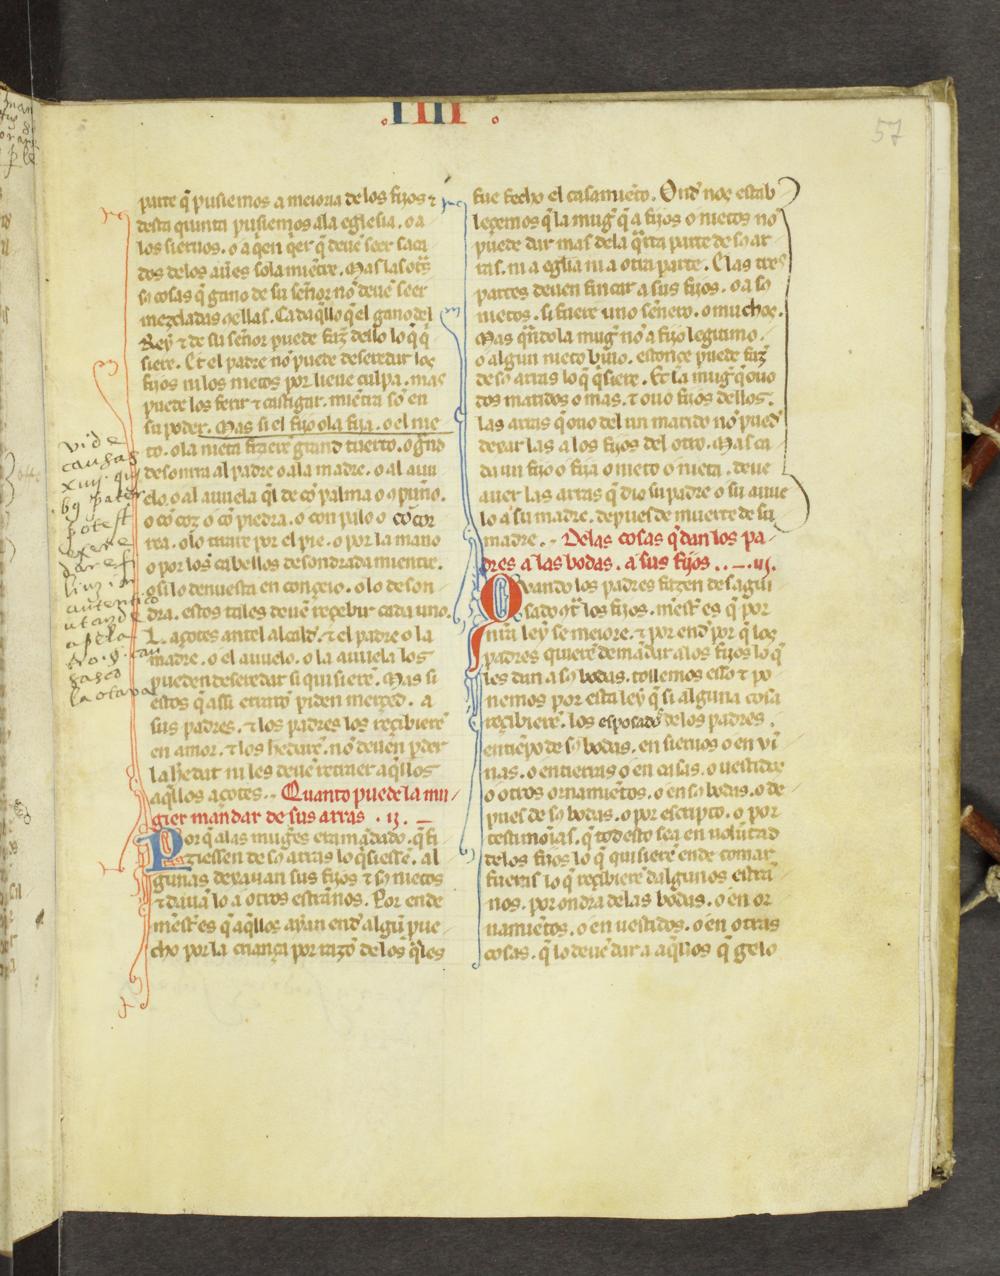 IIII
57
parte q̃ pusiemos a meioria delos fijos ⁊
desta quinta pusiemos ala eglesia. o a
los sieruos. o a q̃en q̃er q̃ deuẽ seer saca
dos delos au̾es sola miẽtre. Mas las ot̃s
sꝰ cosas q̃ gano de su señor nõ deuẽ seer
mezcladas cõ ellas. Cada q̃llo q̃ el gano del
Rey ⁊ de su señor puede faz̾ dello lo q̃ q̃
siere. Et el padre nõ puede deseredar los
fijos ni los nietos por lieue culpa. mas
puede los ferir ⁊ castigar. miẽtra sõ en
su poder. Mas si el fijo o la fija. o el nie
to. o la nieta fiziere grand tuerto. o g̃nd
desonrra al padre o ala madre. o al auu
elo. o al auuela q̃l de cõ palma o cõ puño.
o cõ coz o cõ piedra. o con palo o cõ cor
rea. o lo tirare por el pie. o por la mano
o por los cabellos desondrada mientre.
o si lo denuesta en conçeio. o lo deson
dra. estos tales deuẽ reçebir cada uno.
L. açotes antel alcald̾. ⁊ el padre o la
madre. o el auuelo. o la auuela los
pueden deseredar si quisierẽ. Mas si
estos q̃ assi erratõ piden merçed. a
sus padres. ⁊ los padres los reçibierẽ
en amor. ⁊ los hedarẽ. nõ deuen p̱der
la hedat ni les deuẽ retraer aq̃llos
aq̃llos açotes. Quanto puede la mu
gier mandar de sus arras. .ij.
Por q̃ alas mug̾es era mãdado. q̃ fi
ziessen de sꝰ arras lo q̃ q̃siessẽ. al
gunas dexauan sus fijos ⁊ sꝰ nietos
⁊ dauã lo a otros estrãnos. Por ende
mest̾ es q̃ aq̃llos ayan end̾ algũ pue
cho por la criança por razõ delos q̃les
vide
causas
xiiij. qui
bꝰ pater
potest
exere
dare fi
lium in
fue fecho el casamiẽto. Ond̾ nos estab
leçemos q̃ la mug̾ q̃ a fijos o nietos nõ
puede dar mas dela q̃rta parte de sꝰ ar
ras. ni a eglĩa ni a otra parte. Clas tres
partes deuen fincar a sus fijos. o a sꝰ
nietos. si fuere uno señero. o muchos.
Mas q̃ndo la mug̾ nõ a fijo legitimo.
o algun nieto biuo. estonçe puede faz̾
de sꝰ arras lo q̃ q̃siere. Et la mug̾ q̃ ouo
dos maridos o mas. ⁊ ouo fijos dellos.
las arras q̃ ouo del un marido nõ pued̾
dexar las a los fijos del otro. Mas ca
da un fijo o fija o nieto o nieta. deue
auer las arras q̃ dio su padre o su auue
lo a su madre. depues de muerte de su
madre. Delas cosas q̃ dan los pa
dres a las bodas. a sus fijos. .iij.
Quando los padres fizen desagui
sado cõt̃ los fijos. mest̾ es q̃ por
nr̃a ley se meiore. ⁊ por end̾ por q̃ los
padres quierẽ demãdar alos fijos lo q̃
les dan a sꝰ bodas. tollemos esso ⁊ po
nemos por esta ley q̃ si alguna cosa
reçibierẽ. los esposados delos padres.
en tiẽpo de sꝰ bodas. en sieruos o en vi
nas. o en tierras o en casas. o uestidos
o otros ornamiẽtos. o en sꝰ bodas. o de
pues de sꝰ bodas. o por escripto. o por
testimonias. q̃ todo esto sea en uolũtad
delos fijos lo q̃ quisierẽ ende tomar
fueras lo q̃ reçibierẽ dalgunos estrã
nos. por ondra delas bodas. o en or
namiẽtos. o en uestidos. o en otras
cosas. q̃ lo deuẽ dar a aq̃llos q̃ gelo